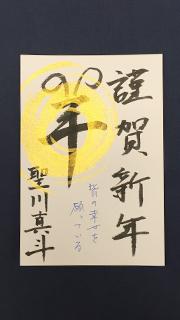 謹賀新年
羊
皆の幸せを
願っている
聖川真斗